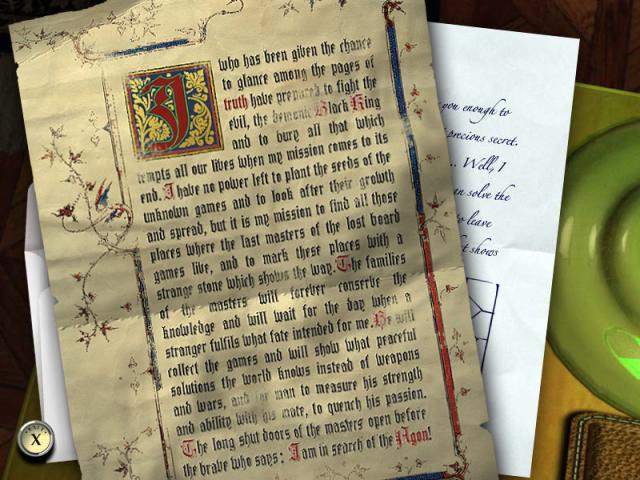 I who has been given the chance
to glance among the pages of
truth have prepared to fight the
evil, the demonic Black King
and to bury all that which
tempts all our lives when my mission comes to its
end. I have no power left to plant the seeds of the
unknown games and to look after their growth
and spread, but it is my mission to find all those
places where the last masters of the lost board
games live, and to mark these places with a
strange stone which shows the way. The families
of the masters will forever conserve the
knowledge and will wait for the day when a
stranger fulfils what fate intended for me. He will
collect the games and will show what peaceful
solutions the world knows instead of weapons
and wars, and for man to measure his strength
and ability with his mate, to quench his passion.
The long shut doors of the masters open before
the brave who says: I am in search of the Agon!
you enough to
precious secret.
... Well, I
solve the
to leave
shows
X